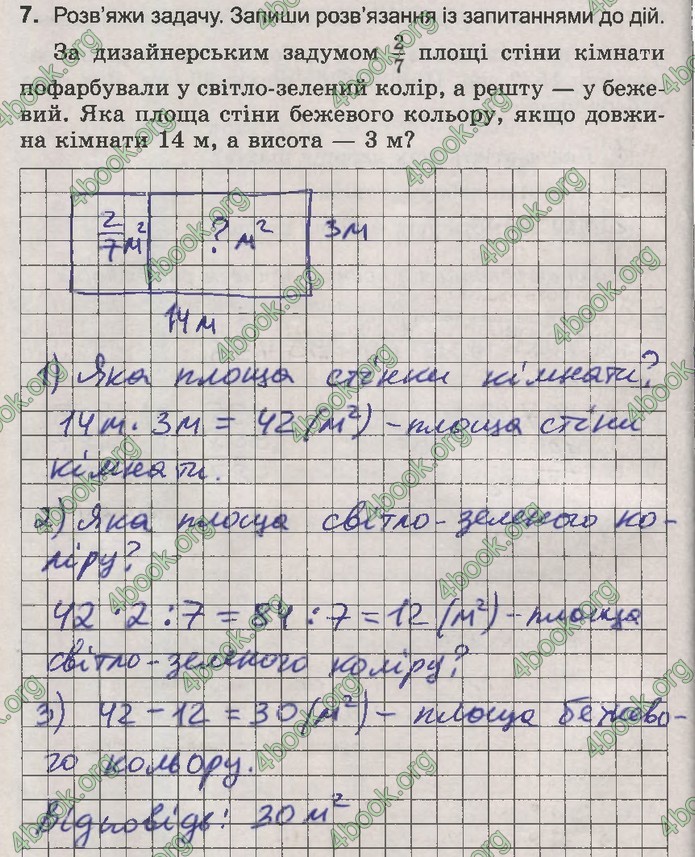 7. Розв'яжи задачу. Запиши розв'язання із запитаннями до дій.
За дизайнерським задумом 2/7 площі стіни кімнати
пофарбували у світло-зелений колір, а решту — у беже-
вий. Яка площа стіни бежевого кольору, якщо довжи-
на кімнати 14 м, а висота — 3 м?
2/7 м² ? м² 3м
14м
1) Яка площа стінки кімнати?
14м · 3м = 42 (м²) – площа стіни
кімнати.
2) Яка площа світло-зеленого ко-
ліру?
42 · 2 : 7 = 84 : 7 = 12 (м²) – площа
світло-зеленого коліру?
3) 42 – 12 = 30 (м²) – площа бежево-
го кольору.
Відповідь: 30 м²
4book.org